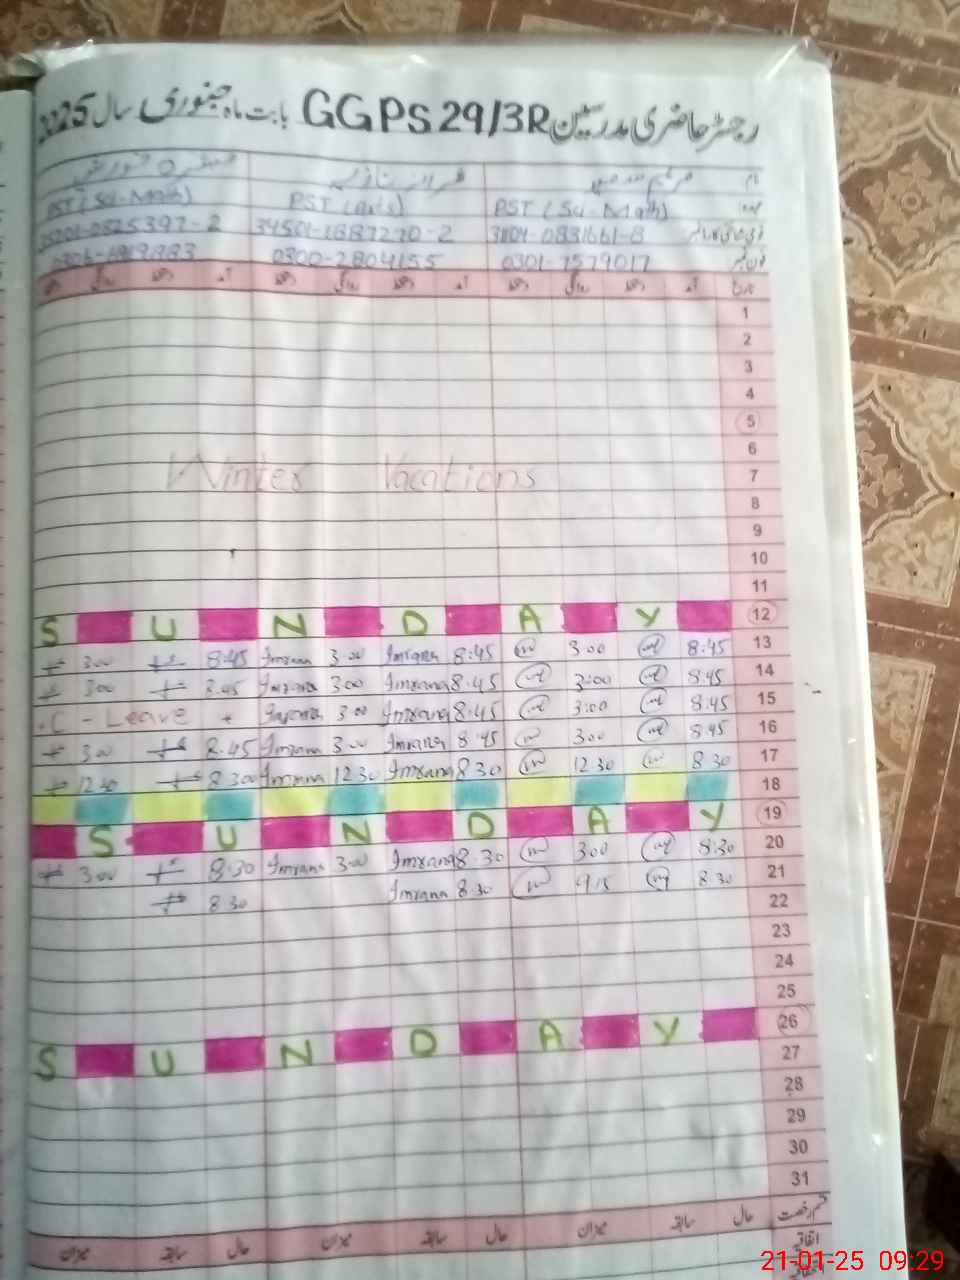 رجسٹر حاضری مدرسین GGPS 29/3R بابت ماہ جنوری سال 2025
نام
PST (Sci-Math) PST (Arts) PST (Sci-Math)
34501-1887270-2
فون نمبر 0301-7579017 0300-2804155
تاریخ آمد دستخط روانگی دستخط آمد دستخط روانگی دستخط آمد دستخط روانگی دستخط
1
2
3
4
5
6
Winter Vacations 7
8
9
10
11
S U N D A Y 12
3:00 8:45 Imrana 3:00 Imrana 8:45 3:00 8:45 13
3:00 8:45 Imrana 3:00 Imrana 8:45 3:00 8:45 14
C-Leave Imrana 3:00 Imrana 8:45 3:00 8:45 15
3:00 8:45 Imrana 3:00 Imrana 8:45 3:00 8:45 16
12:30 8:30 Imrana 12:30 Imrana 8:30 12:30 8:30 17
18
S U N D A Y 19
3:00 8:30 Imrana 3:00 Imrana 8:30 3:00 8:30 20
8:30 Imrana 8:30 9:15 8:30 21
22
23
24
25
S U N D A Y 26
27
28
29
30
31
قسم رخصت حال سابقہ میزان حال سابقہ میزان حال سابقہ میزان
اتفاقیہ
21-01-25 09:29